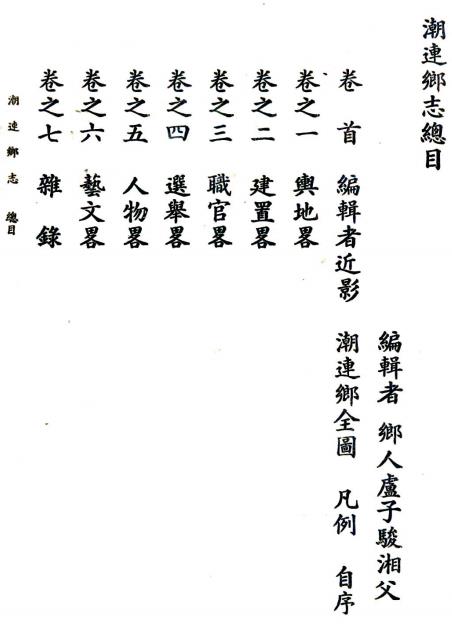 潮連鄉志總目
編輯者 鄉人盧子駿湘父
卷首 編輯者近影 潮連鄉全圖 凡例 自序
卷之一 輿地畧
卷之二 建置畧
卷之三 職官畧
卷之四 選舉畧
卷之五 人物畧
卷之六 藝文畧
卷之七 雜錄
潮連鄉志 總目